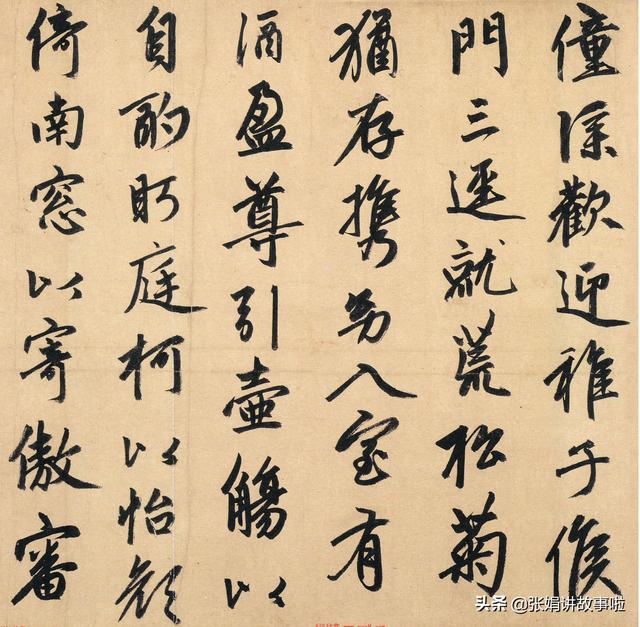 僮僕歡迎稚子候
門三逕就荒松菊
猶存携幼入室有
酒盈尊引壺觴以
自酌眄庭柯以怡顏
倚南窓以寄傲審
头条 @张娟讲故事啦